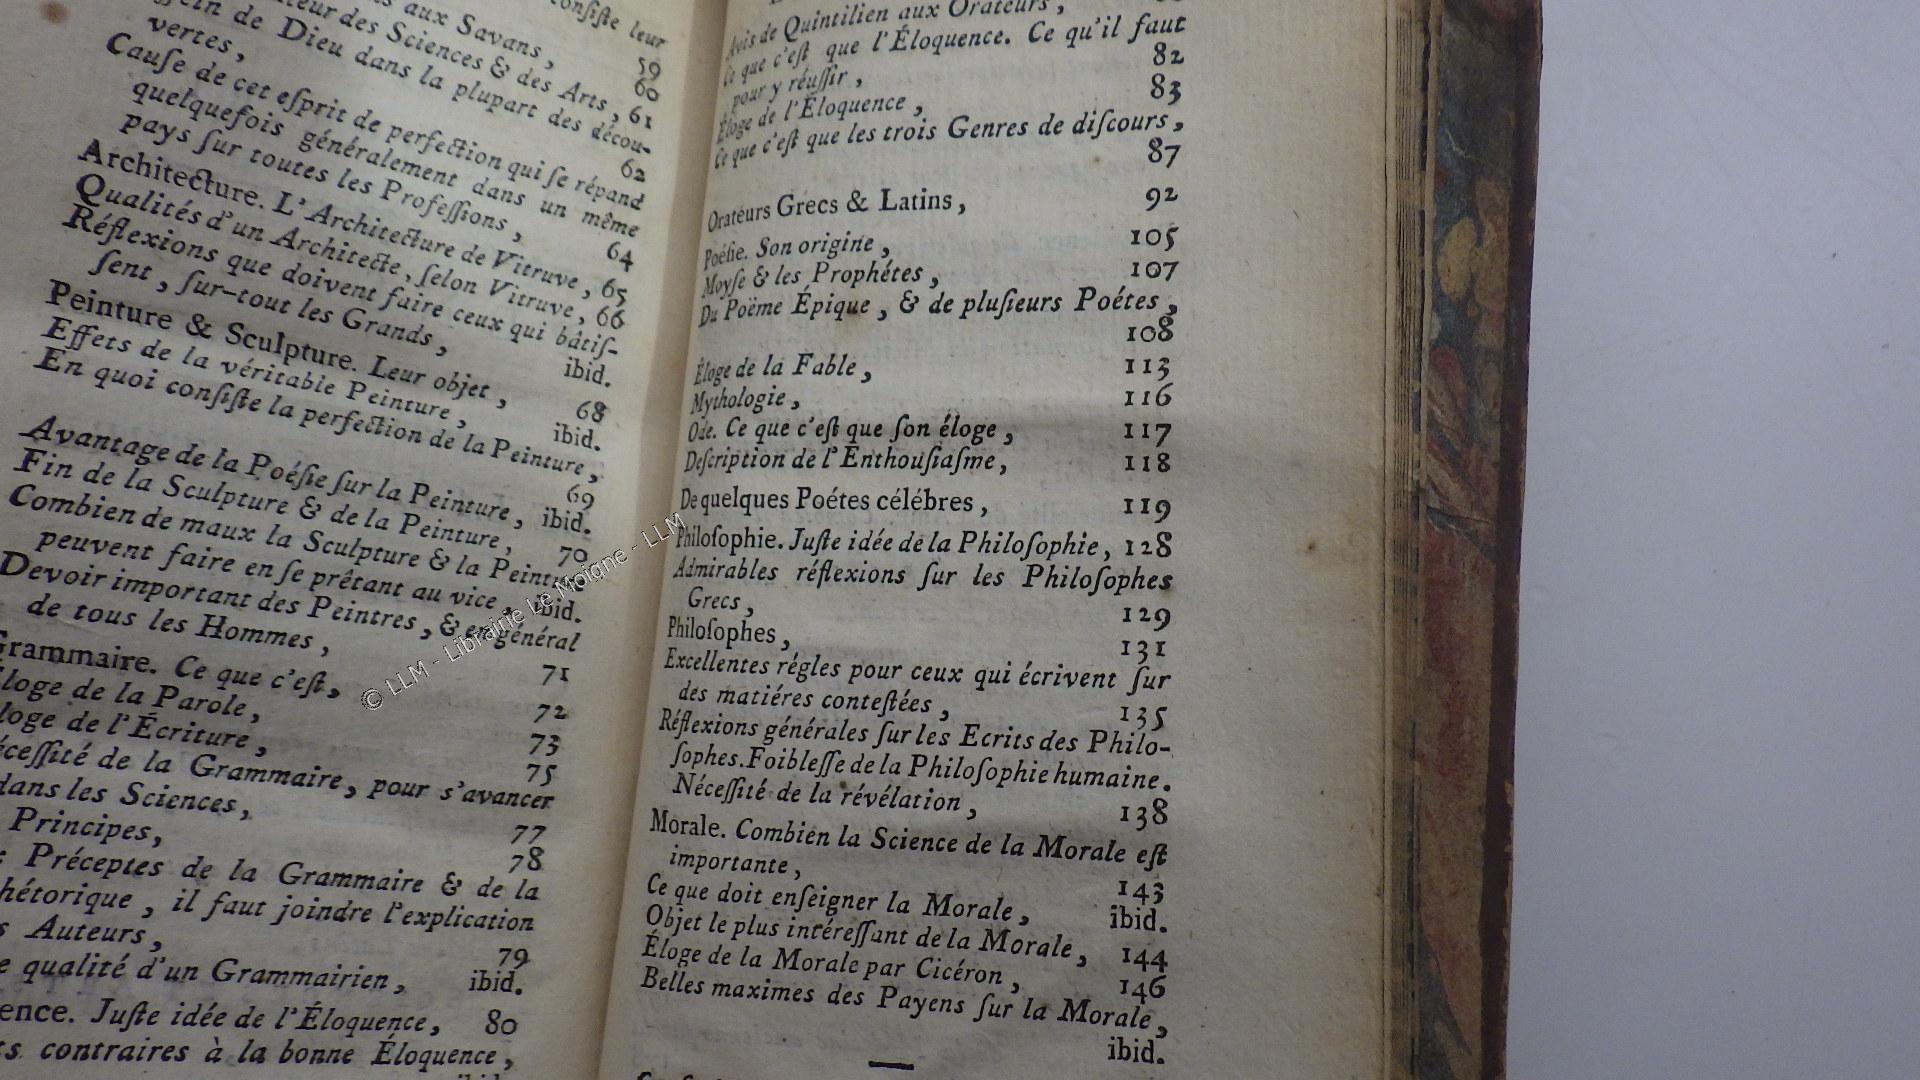 consiſte leur
aux Savans, 59
teur des Sciences & des Arts, 60
de Dieu dans la plupart des décou-
vertes, 61
Cauſe de cet eſprit de perfection qui ſe répand
quelquefois généralement dans un même
pays ſur toutes les Profeſſions, 62
Architecture. L'Architecture de Vitruve, 64
Qualités d'un Architecte, ſelon Vitruve, 65
Réflexions que doivent faire ceux qui bâtiſ-
ſent, ſur-tout les Grands, 66
Peinture & Sculpture. Leur objet, ibid.
Effets de la véritable Peinture, 68
En quoi conſiſte la perfection de la Peinture,
ibid.
Avantage de la Poéſie ſur la Peinture, 69
Fin de la Sculpture & de la Peinture, ibid.
Combien de maux la Sculpture & la Peinture
peuvent faire en ſe prêtant au vice, 70
Devoir important des Peintres, & en général
de tous les Hommes, ibid.
Grammaire. Ce que c'eſt, 71
loge de la Parole, 72
loge de l'Écriture, 73
éceſſité de la Grammaire, pour s'avancer
dans les Sciences, 75
Principes, 77
: Préceptes de la Grammaire & de la 78
hétorique, il faut joindre l'explication
s Auteurs, 79
e qualité d'un Grammairien, ibid.
ence. Juſte idée de l'Éloquence, 80
ts contraires à la bonne Éloquence,
ibid.
Avis de Quintilien aux Orateurs,
Ce que c'eſt que l'Éloquence. Ce qu'il faut
pour y réuſſir, 82
Éloge de l'Éloquence, 83
Ce que c'eſt que les trois Genres de diſcours,
87
Oratéurs Grecs & Latins, 92
Poéſie. Son origine, 105
Moyſe & les Prophétes, 107
Du Poëme Épique, & de pluſieurs Poétes,
108
Éloge de la Fable, 113
Mythologie, 116
Ode. Ce que c'eſt que ſon éloge, 117
Deſcription de l'Enthouſiaſme, 118
De quelques Poétes célébres, 119
Philoſophie. Juſte idée de la Philoſophie, 128
Admirables réflexions ſur les Philoſophes
Grecs, 129
Philoſophes, 131
Excellentes régles pour ceux qui écrivent ſur
des matiéres conteſtées, 135
Réflexions générales ſur les Ecrits des Philo-
ſophes. Foibleſſe de la Philoſophie humaine.
Néceſſité de la révélation, 138
Morale. Combien la Science de la Morale eſt
importante, 143
Ce que doit enſeigner la Morale, ibid.
Objet le plus intéreſſant de la Morale, 144
Éloge de la Morale par Cicéron, 146
Belles maximes des Payens ſur la Morale,
ibid.
© LLM - Librairie Le Moigne - LLM